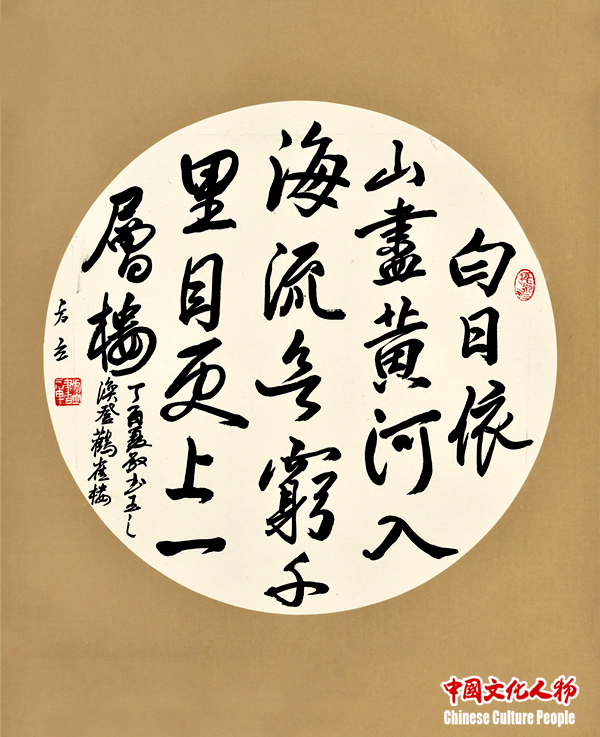 白日依
山盡黄河入
海流欲窮千
里目更上一
層樓
丁酉夏敬书王之
渙登鸛雀樓
中國文化人物
Chinese Culture People